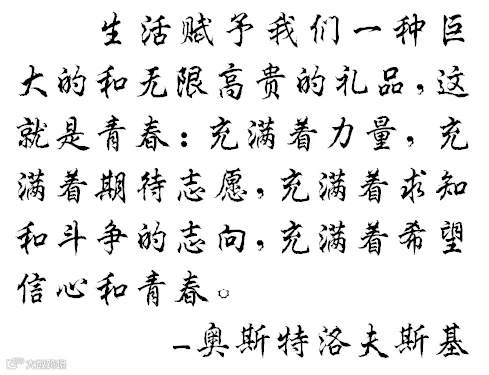 生活赋予我们一种巨
大的和无限高贵的礼品，这
就是青春：充满着力量，充
满着期待志愿，充满着求知
和斗争的志向，充满着希望
信心和青春。
-奥斯特洛夫斯基